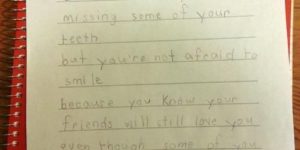 missing some of your
teeth
but you're not afraid to
smile
because you know your
friends will still love you
even though some of you